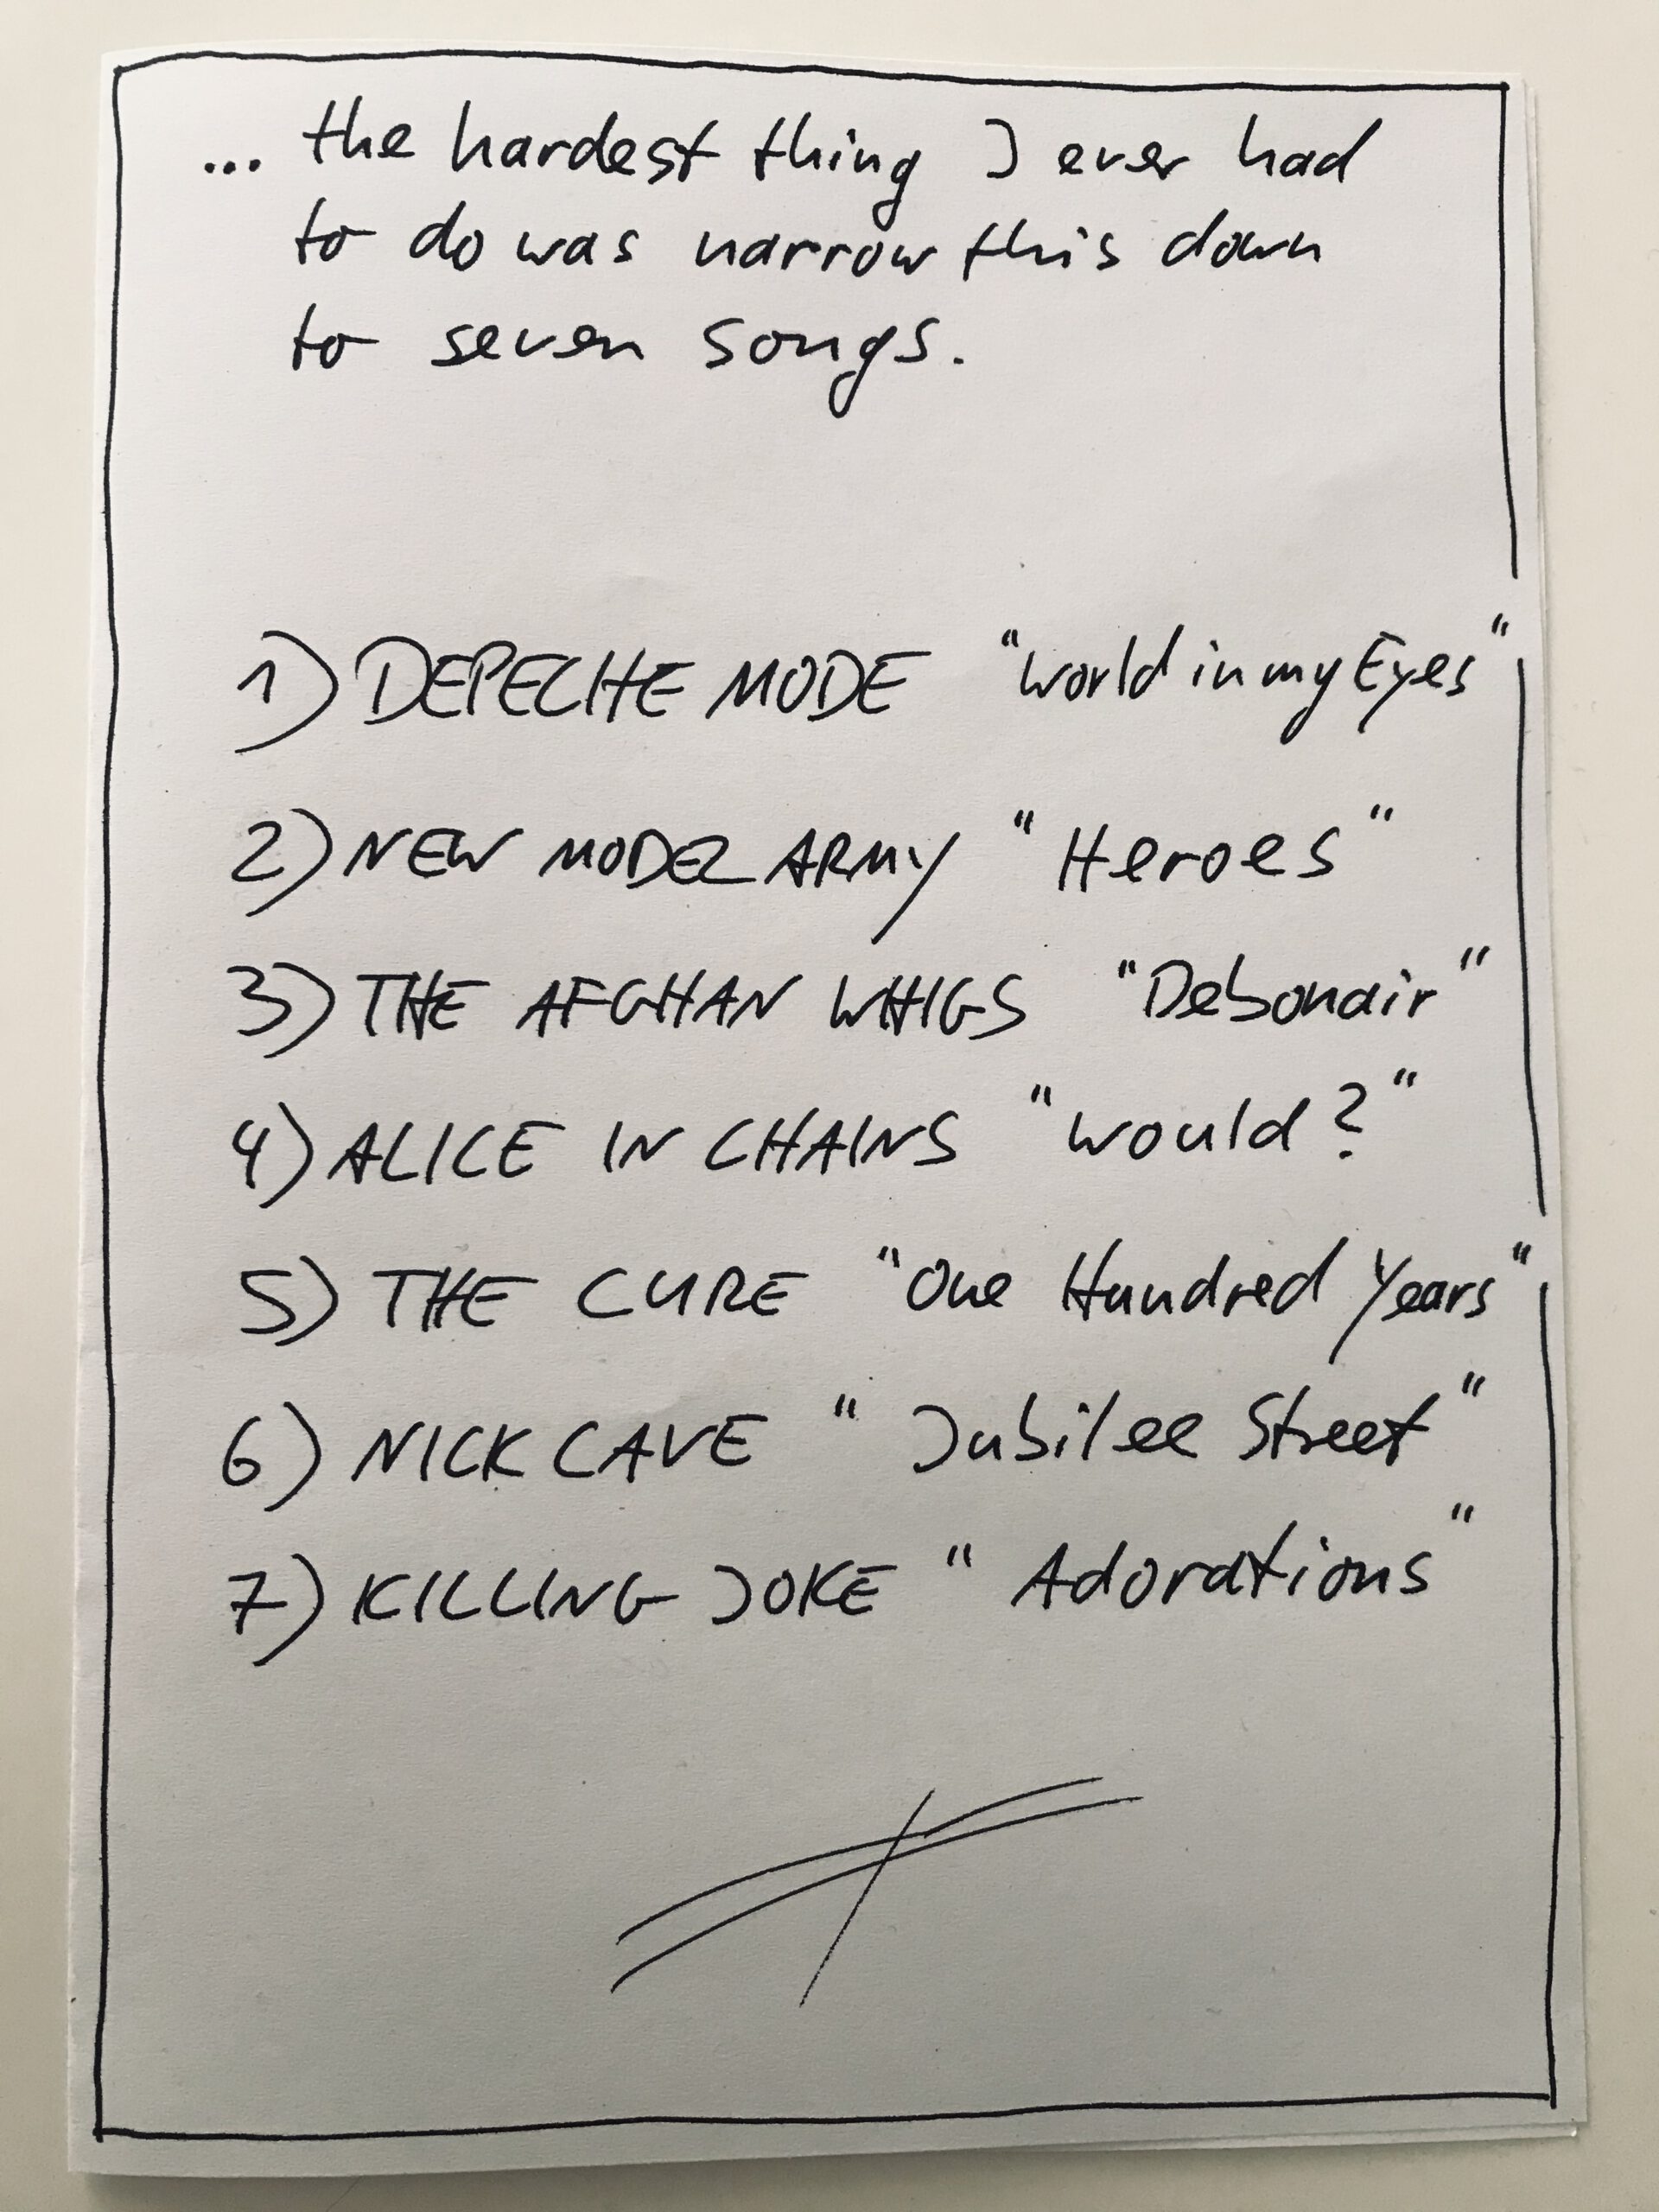 ... the hardest thing I ever had
to do was narrow this down
to seven songs.
1) DEPECHE MODE "World in my Eyes"
2) NEW MODEL ARMY "Heroes"
3) THE AFGHAN WHIGS "Debonair"
4) ALICE IN CHAINS "Would?"
5) THE CURE "One Hundred Years"
6) NICK CAVE "Jubilee Street"
7) KILLING JOKE "Adorations"